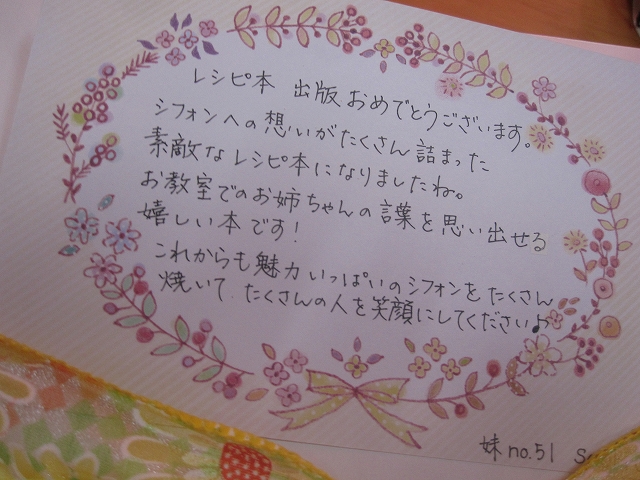 レシピ本 出版おめでとうございます。
シフォンへの想いがたくさん詰まった
素敵なレシピ本になりましたね。
お教室でのお姉ちゃんの言葉を思い出せる
嬉しい本です!
これからも魅力いっぱいのシフォンをたくさん
焼いて たくさんの人を笑顔にしてください♪
妹no.51